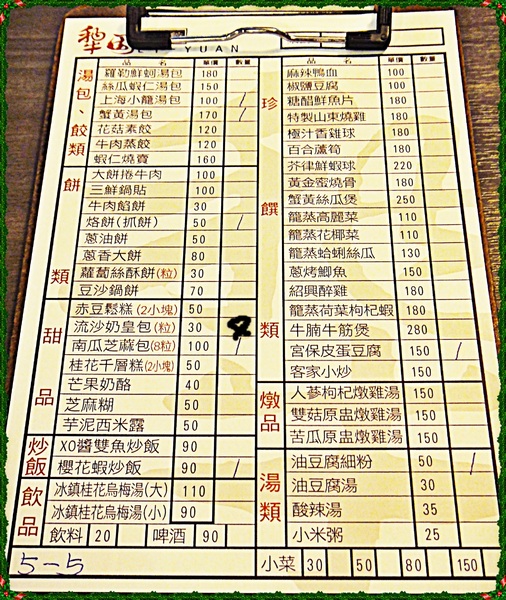 犂園 YUAN
品 名 單價 數量
湯包、餃類
羅勒鮮蚵湯包 180
絲瓜蝦仁湯包 150
上海小籠湯包 100 /
蟹黃湯包 170 /
花菇素餃 120
牛肉蒸餃 120
蝦仁燒賣 160
餅類
大餅捲牛肉 100
三鮮鍋貼 100
牛肉餡餅 30
烙餅(抓餅) 50 /
蔥油餅 50
蔥香大餅 80
蘿蔔絲酥餅(粒) 30
豆沙鍋餅 70
甜品
赤豆鬆糕(2小塊) 50
流沙奶皇包(粒) 30 8
南瓜芝蔴包(8粒) 100 /
桂花千層糕(2小塊) 50
芒果奶酪 40
芝麻糊 50
芋泥西米露 50
炒飯
XO醬雙魚炒飯 90
櫻花蝦炒飯 90 /
飲品
冰鎮桂花烏梅湯(大) 110
冰鎮桂花烏梅湯(小) 90
飲料 20 啤酒 90
5-5
品 名 單價 數量
珍饌類
麻辣鴨血 100
椒鹽豆腐 100
糖醋鮮魚片 180
特製山東燒雞 180
極汁香雞球 180
百合蘆筍 180
芥律鮮蝦球 220
黃金蜜燒骨 180
蟹黃絲瓜煲 250
籠蒸高麗菜 110
籠蒸花椰菜 110
籠蒸蛤蜊絲瓜 130
蔥烤鯽魚 150
紹興醉雞 180
籠蒸荷葉枸杞蝦 180
牛腩牛筋煲 280
宮保皮蛋豆腐 150 /
客家小炒 150
燉品
人蔘枸杞燉雞湯 150
雙菇原盅燉雞湯 150
苦瓜原盅燉雞湯 150
湯類
油豆腐細粉 50 /
油豆腐湯 30
酸辣湯 35
小米粥 25
小菜 30 50 80 150